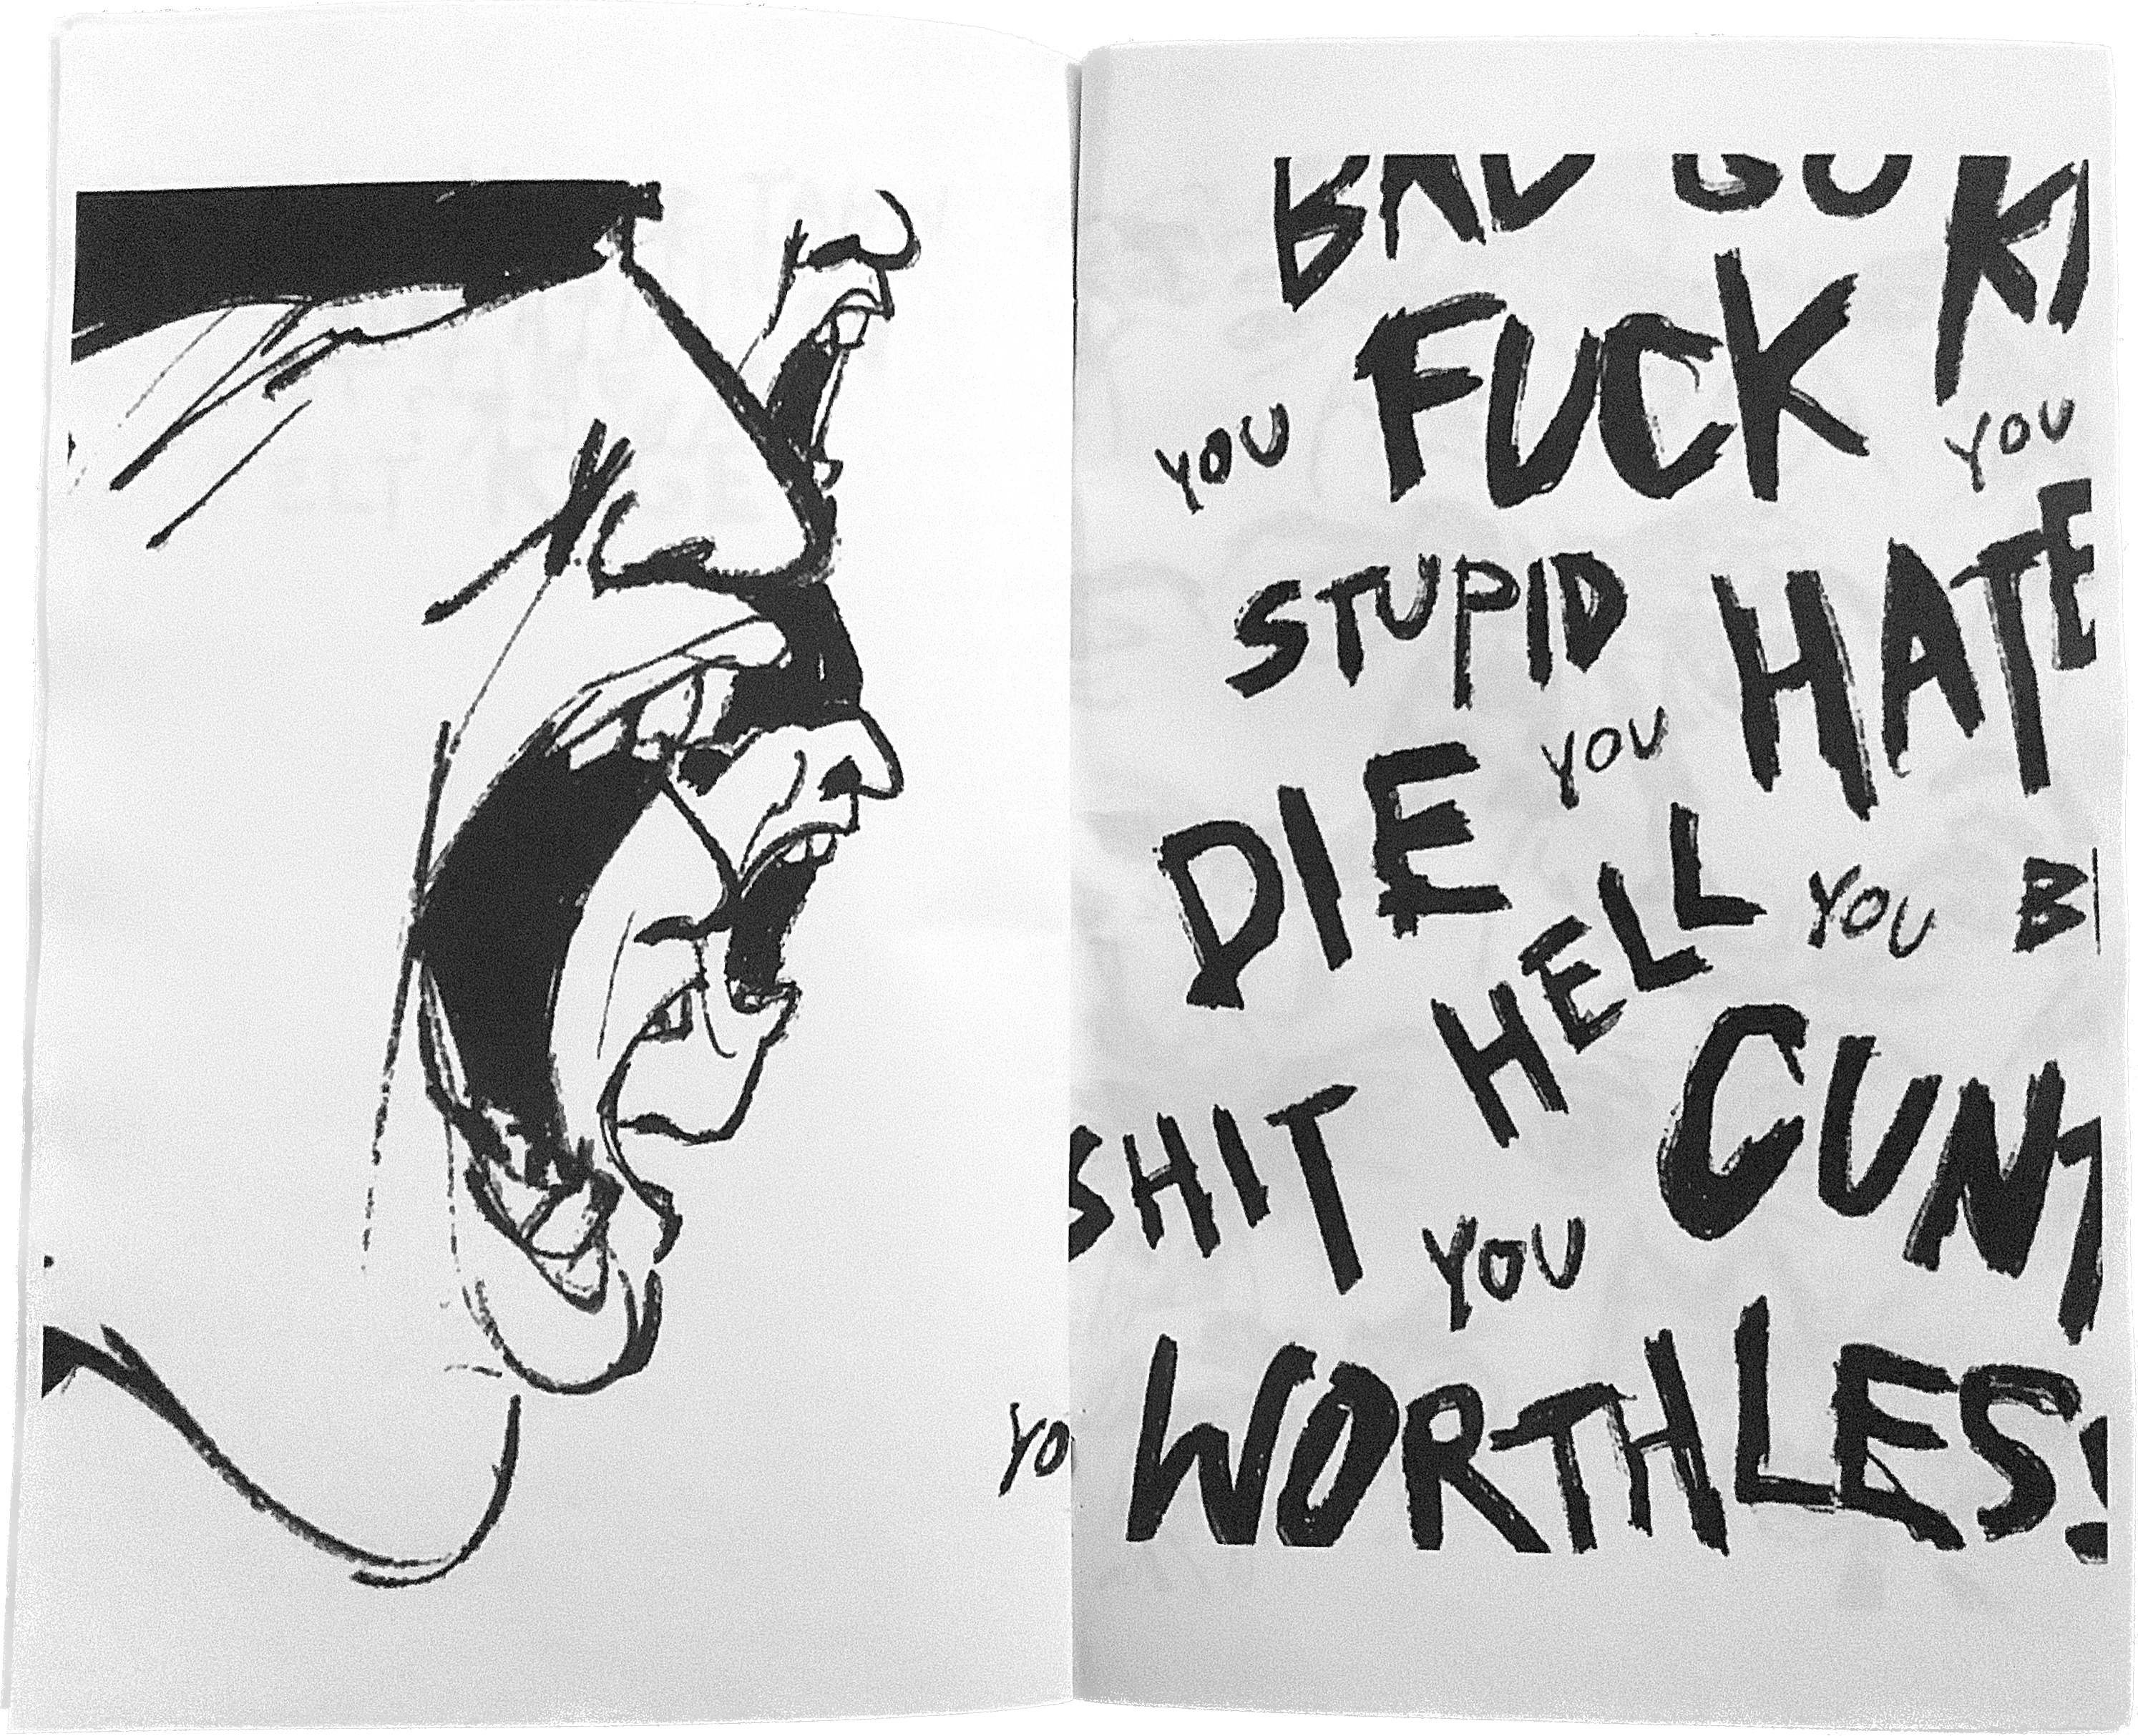 BAD GO KI
FUCK
YOU YOU
STUPID HATE
DIE YOU
HELL YOU B
SHIT CUNT
YOU
YO WORTHLES